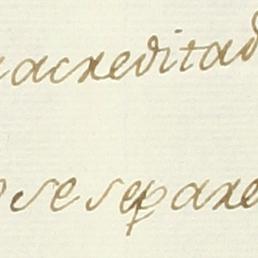 acreditad
se separe